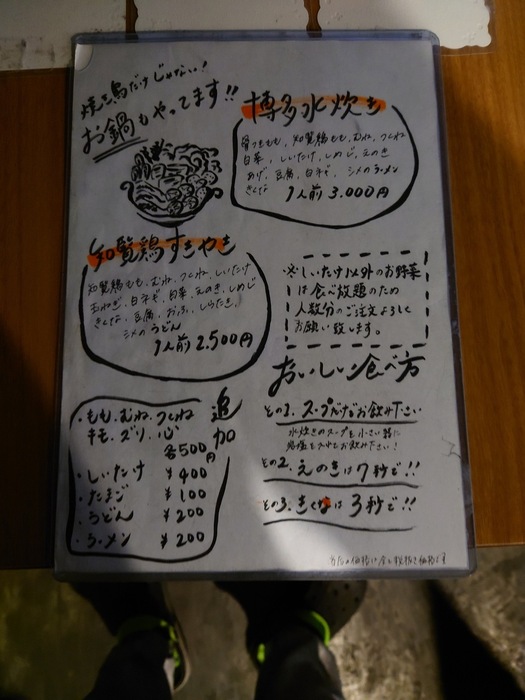 焼き鳥だけじゃない!
お鍋もやってます!!
博多水炊き
骨つきもも, 知覧鶏もも, むね, つくね
白菜, しいたけ, しめじ, えのき
あげ, 豆腐, 白ネギ, シメのラーメン
きくな
1人前 3.000円
知覧鶏すきやき
知覧鶏もも, むね, つくね, しいたけ
玉ねぎ, 白ネギ, 白菜, えのき, しめじ
きくな, 豆腐, おふ, しらたき,
シメのうどん
1人前 2.500円
※しいたけ以外のお野菜
は食べ放題のため
人数分のご注文よろしく
お願い致します。
おいしい食べ方
その1. スープだけお飲み下さい
水炊きのスープを小さい器に
お飲み下さい!
その2. えのきは7秒で!!
その3. きくなは3秒で!!
追加
・もも, むね, つくね
キモ, ズリ, 心
各500円
・しいたけ ¥400
・たまご ¥100
・うどん ¥200
・ラーメン ¥200
価格は全て税抜き価格です